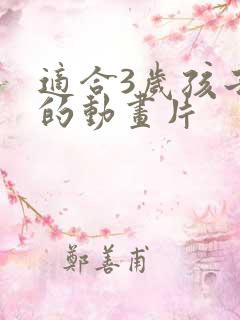 適合3歲孩子
的動畫片
鄭善甫